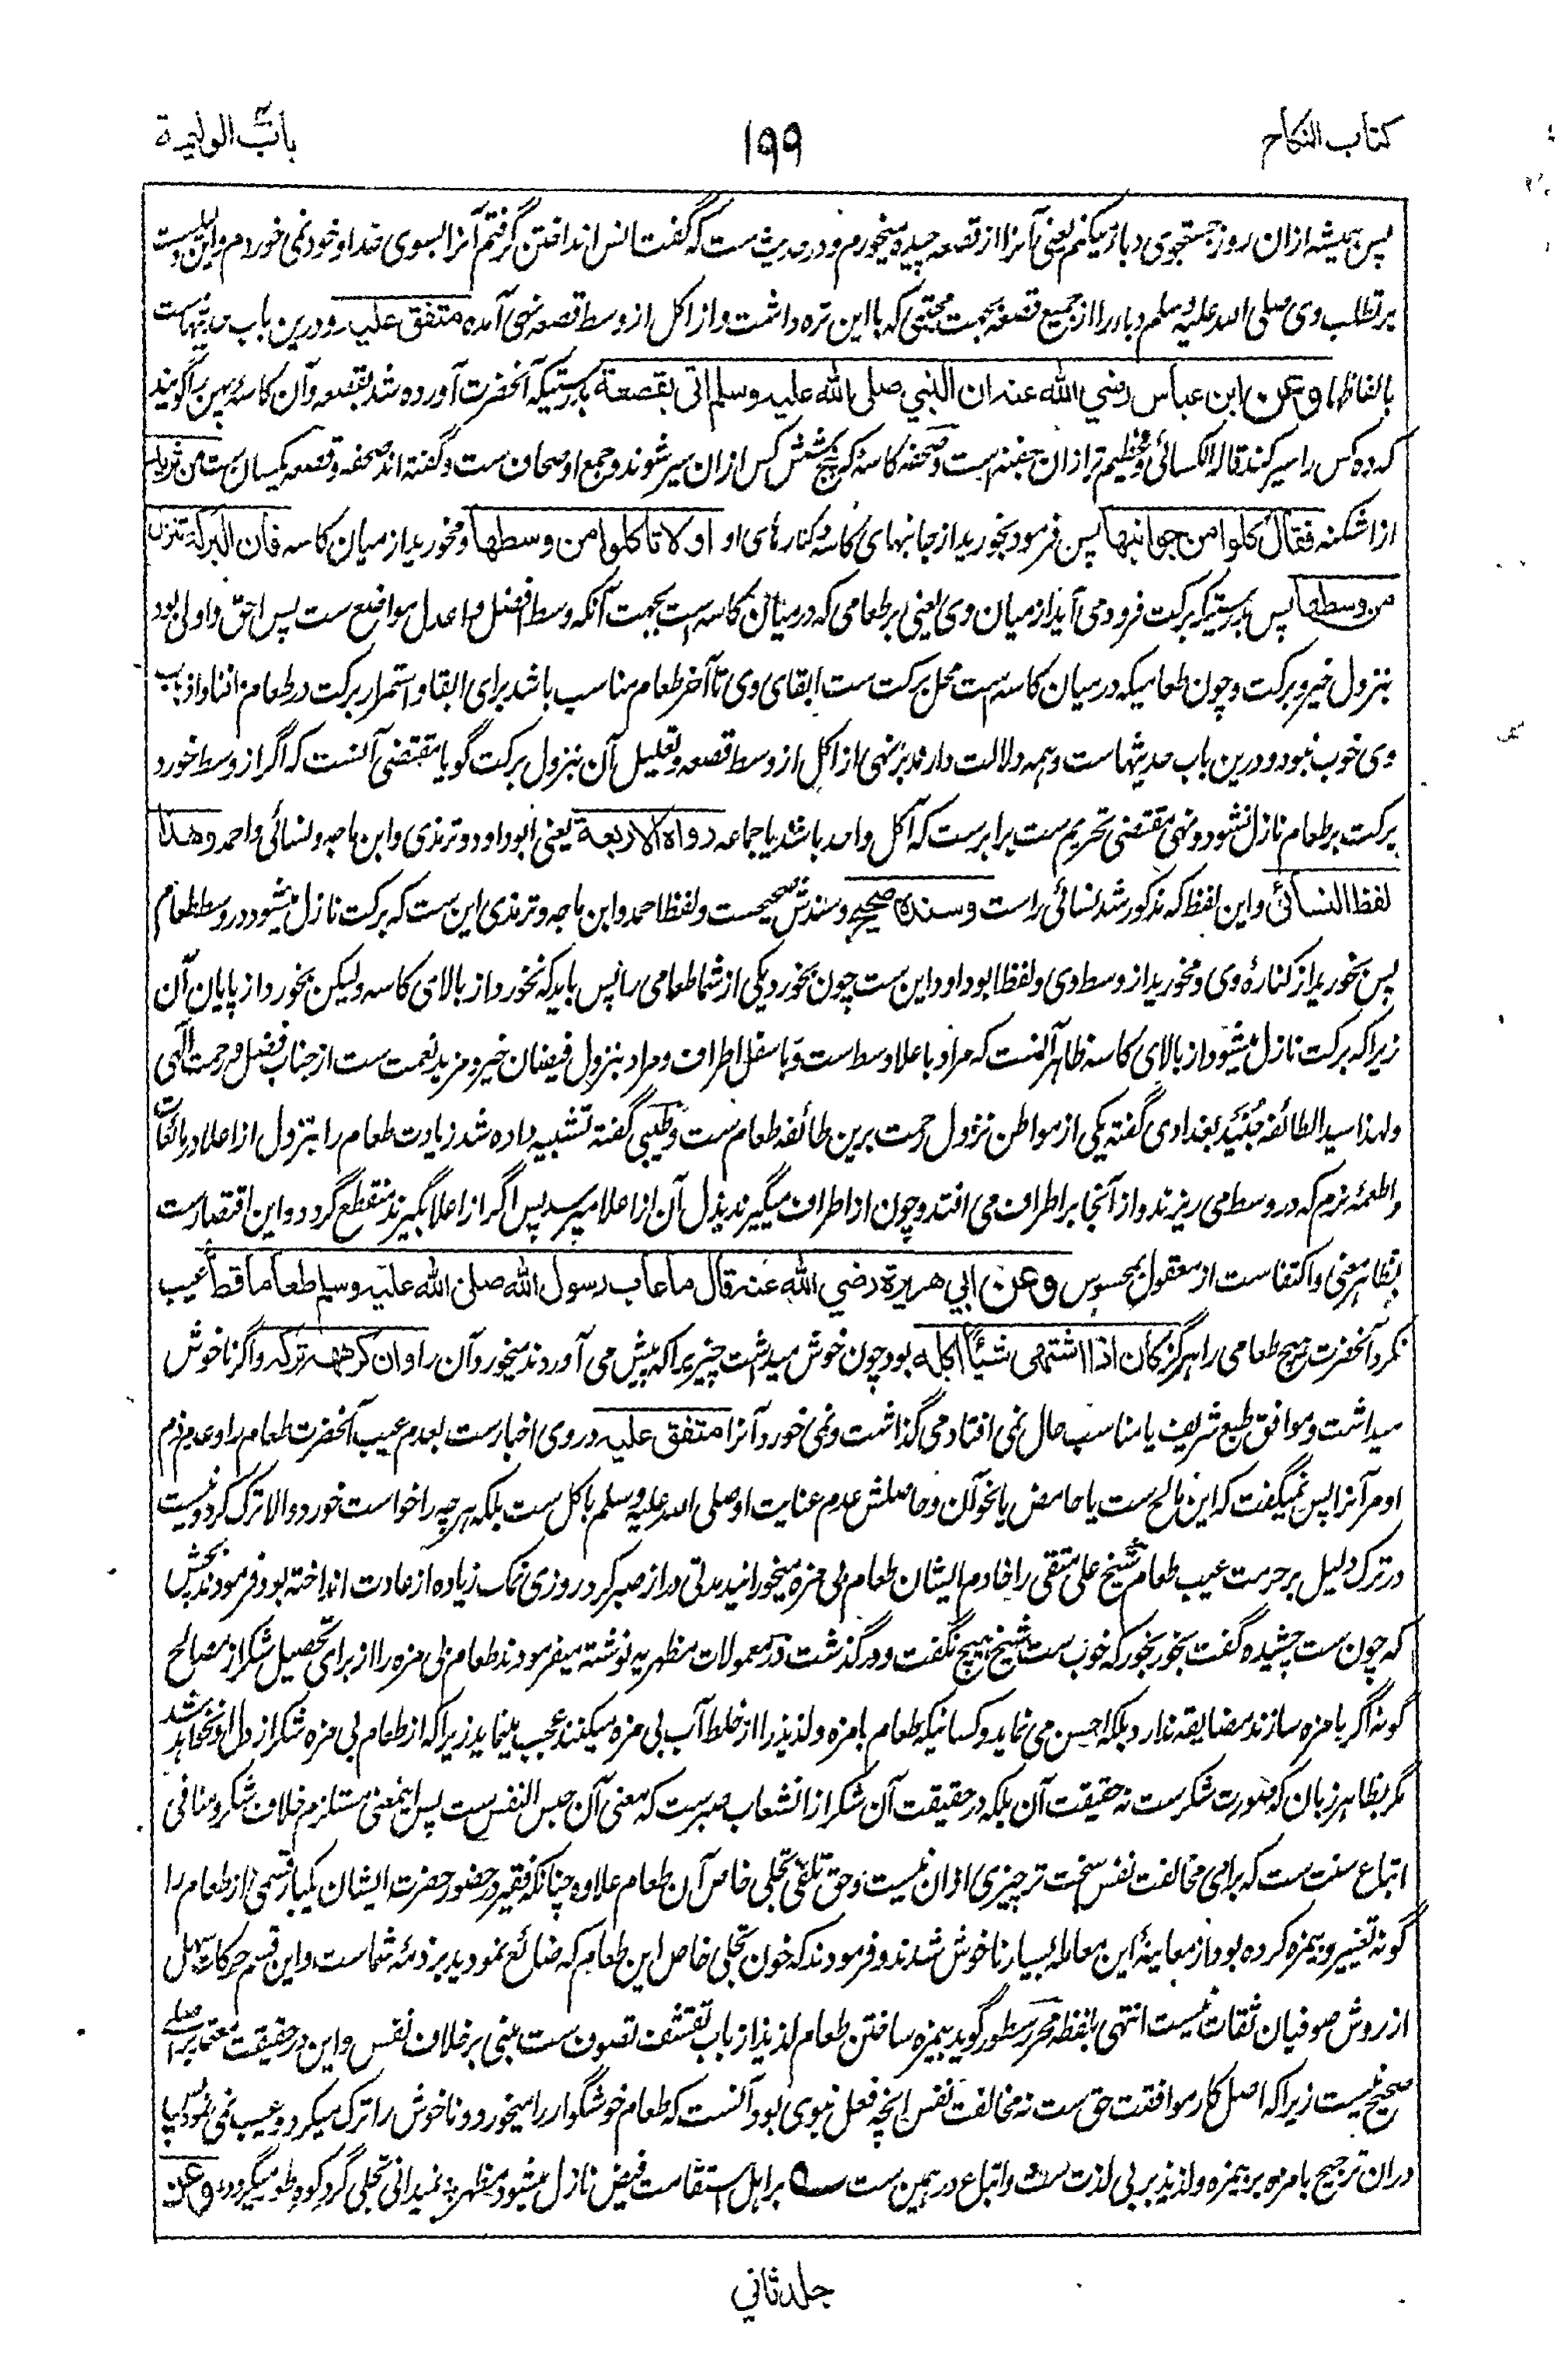 كتاب النكاح
١٩٩
باب الوليمة
پس همیشه ازان روز جستجوی دبا میکنم یعنی آنرا از قصعه چیده میخورم و در حدیث ست که گفت انس از انداختن گرفتم آنرا بسوی خدا و خود نمی خوردم و این دلیلست
بر تطلب وی صلی الله علیه وسلم دبا را از جمیع قصعه بجهت محبتی که با این تره داشت و از اکل از وسط قصعه نهی آمده متفق علیه و درین باب حدیثهاست
بالفاظها وعن ابن عباس رضي الله عنه ان النبي صلى الله عليه وسلم اتى بقصعة بدرستیکه آنحضرت آورده شد بقصعه وآن کاسه پهن را گویند
که ده کس را سیر کند قاله الکسائی و عظیم تر ازان جفنه است و صحفه کاسه که پنج شش کس ازان سیر شوند و جمع او صحاف ست و گفته اند صحفه و قصعه یکسان ست من ثرید
از اشکنه فقال كلوا من جوانبها پس فرمود بخورید از جانبهای کاسه و کنارهای او ولا تاكلوا من وسطها ومخورید از میان کاسه فان البركة تنزل
من وسطها پس بدرستیکه برکت فرود می آید از میان وی یعنی بر طعامی که در میان کاسه است بجهت آنکه وسط افضل و اعدل مواضع ست پس احق و اولی بود
بنزول خیر و برکت و چون طعامیکه در میان کاسه است محل برکت ست ابقای وی تا آخر طعام مناسب باشد برای ابقا و استمرار برکت در طعام و افنا و اذهاب
وی خوب نبود و درین باب حدیثهاست و همه دلالت دارند بر نهی از اکل از وسط قصعه و تعلیل آن بنزول برکت گویا مقتضی آنست که اگر از وسط خورد
برکت بر طعام نازل نشود و نهی مقتضی تحریم ست برابر ست که آکل واحد باشد یا جماعه رواه الاربعة یعنی ابوداود و ترمذی و ابن ماجه و نسائی و احمد وهذا
لفظ النسائي و این لفظ که مذکور شد نسائی راست وسنده صحيح و سندش صحیحست و لفظ احمد و ابن ماجه و ترمذی این ست که برکت نازل میشود در وسط طعام
پس بخورید از کنارهٔ وی و مخورید از وسط وی و لفظ ابوداود این ست چون بخورد یکی از شما طعامی را پس باید که نخورد از بالای کاسه ولیکن بخورد از پایان آن
زیرا که برکت نازل میشود از بالای کاسه ظاهر آنست که مراد باعلا وسط است و باسفل اطراف و مراد بنزول فیضان خیر و مزید نعمت ست از جناب فضل و رحمت الٰهی
ولهذا سید الطائفه جنید بغدادی گفته یکی از مواطن نزول رحمت برین طائفه طعام ست و طیبی گفته تشبیه داده شد زیادت طعام را بنزول از اعلا در مائعات
و اطعمهٔ نرم که در وسط می ریزند و از آنجا بر اطراف می افتد و چون از اطراف میگیرند بذل آن از اعلا میرسد پس اگر از اعلا بگیرند منقطع گردد و این اقتصار ست
بظاهر معنی و اکتفا ست از معقول بمحسوس وعن ابي هريرة رضي الله عنه قال ما عاب رسول الله صلى الله عليه وسلم طعاما قط عیب
نکرد آنحضرت هیچ طعامی را هرگز كان اذا اشتهى شيئا اكله بود چون خوش میداشت چیزیرا که پیش می آوردند میخورد آن را وان كرهه تركه و اگر ناخوش
میداشت و موافق طبع شریف یا مناسب حال نمی افتاد می گذاشت و نمی خورد آنرا متفق عليه در وی اخبار ست بعدم عیب آنحضرت طعام را و عدم ذم
او مر آنرا پس نمیگفت که این مالح ست یا حامض یا نحو آن و حاصلش عدم عنایت او صلی الله علیه وسلم باکل ست بلکه هرچه را خواست خورد و الا ترک کرد و نیست
در ترک دلیل بر حرمت عیب طعام شیخ علی متقی را خادم ایشان طعام بی مزه میخورانید مدتی دراز صبر کرد روزی نمک زیاده از عادت انداخته بود فرمودند بچش
که چون ست چشیده گفت بخور بخور که خوب ست شیخ هیچ نگفت و درگذشت در معمولات مظهریه نوشته میفرمودند طعام بی مزه را از برای تحصیل شکر از مصالح
گونه اگر بامزه سازند مضایقه ندارد بلکه احسن می نماید و کسانیکه طعام بامزه و لذیذ را از خلط آب بی مزه میکنند عجب مینماید زیرا که از طعام بی مزه شکر از دل او نخواهد شد
مگر بظاهر زبان که صورت شکر ست نه حقیقت آن بلکه در حقیقت آن شکر از انشعاب صبر ست که معنی آن حبس النفس ست پس اینمعنی مستلزم خلاف شکر و منافی
اتباع سنت ست که برای مخالفت نفس سخت تر چیزی ازان نیست و حق تلقی تجلی خاص آن طعام علاوه چنانکه فقیر در حضور حضرت ایشان یکبار قسمی از طعام را
گونه تغییر و بیمزه کرده بود از معاینهٔ این معامله بسیار ناخوش شدند و فرمودند که خون تجلی خاص این طعام که ضائع نمودید بر ذمهٔ شماست و این قسم حرکات سهل
از روش صوفیان ثقات نیست انتهی بلفظه محرر سطور گوید بیمزه ساختن طعام لذیذ از باب تقشف تصوف ست مبنی بر خلاف نفس و این در حقیقت معتمد بر اصلی
صحیح نیست زیرا که اصل کار موافقت حق ست نه مخالفت نفس آنچه فعل نبوی بود آنست که طعام خوشگوار را میخورد و ناخوش را ترک میکرد و عیب نمی نمود پس
دران ترجیح بامزه بر بیمزه و لذیذ بر بی لذت ست و اتباع در همین ست بر اهل استقامت فیض نازل میشود مظهر نمیدانی تجلی گرد کوه طور میگردد وعن
جلد ثاني